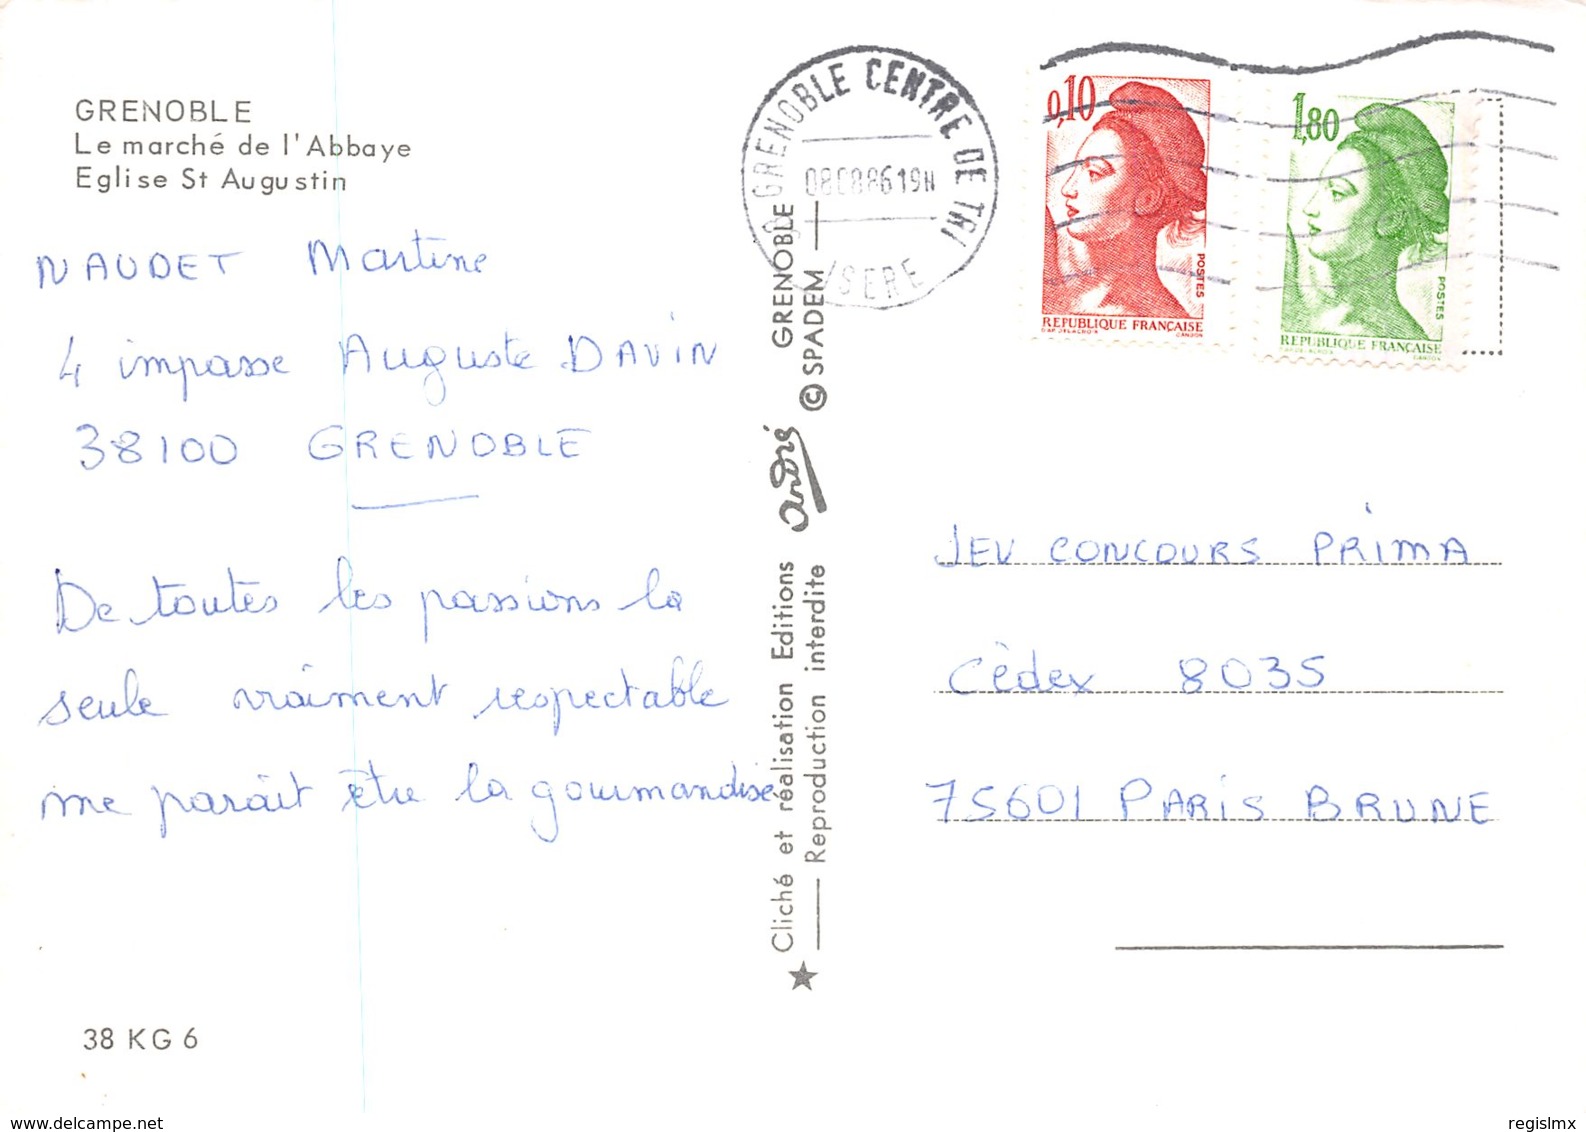 GRENOBLE
Le marché de l'Abbaye
Eglise St Augustin
NAUDET Martine
4 impasse Auguste DAVIN
38100 GRENOBLE
De toutes les passions la
seule vraiment respectable
me paraît être la gourmandise
38 KG 6
GRENOBLE CENTRE DE TRI
19H
ISERE
0,10
POSTES
REPUBLIQUE FRANÇAISE
1,80
POSTES
REPUBLIQUE FRANÇAISE
Cliché et réalisation Editions andré GRENOBLE
Reproduction interdite © SPADEM
JEU CONCOURS PRIMA
Cèdex 8035
75601 PARIS BRUNE
www.delcampe.net
regislmx